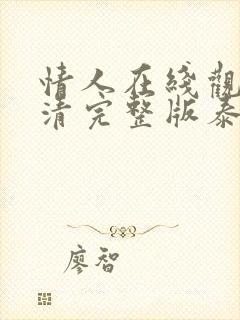 情人在线觀
清完整版泰
廖智